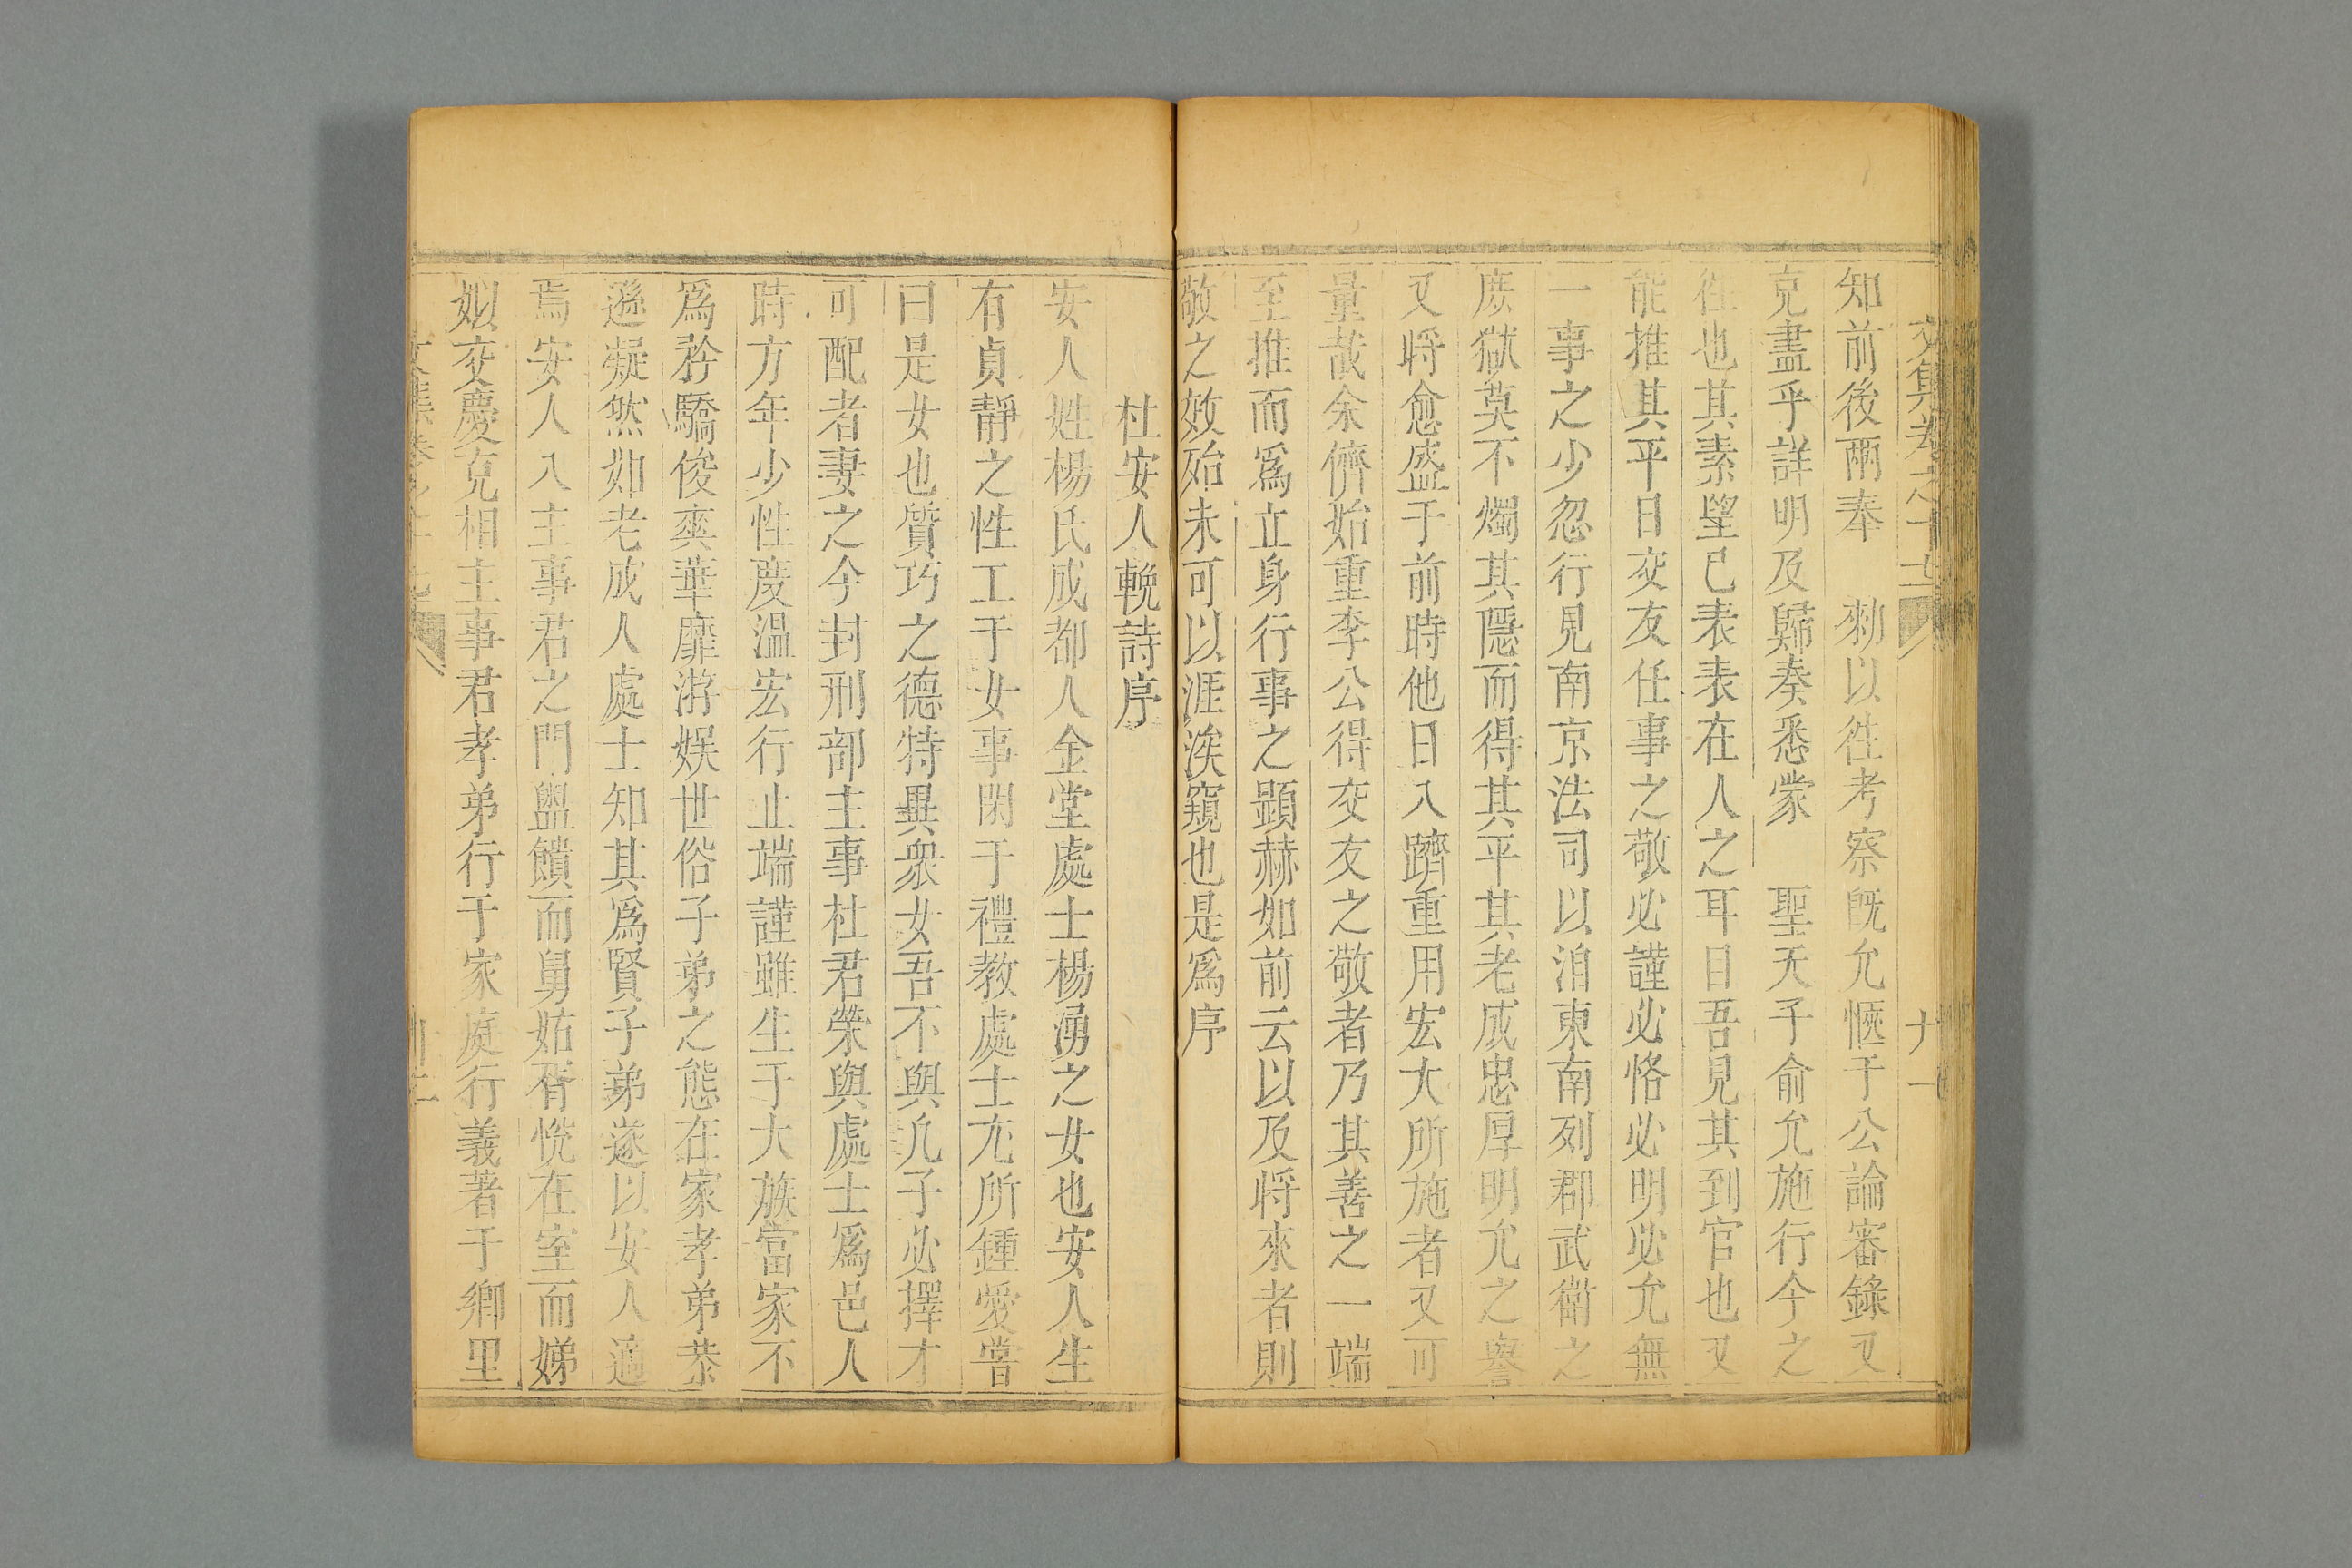 知前後兩奉　勑以徃考察旣允愜于公論審錄又
克盡乎詳明及歸奏悉蒙　聖天子俞允施行今之
徃也其素望已表表在人之耳目吾見其到官也又
能推其平日交友任事之敬必謹必恪必明必允無
一事之少忽行見南京法司以洎東南列郡武衛之
庶獄莫不燭其隱而得其平其老成忠厚明允之譽
又將愈盛于前時他日入躋重用宏大所施者又可
量哉余儕始重李公得交友之敬者乃其善之一端
至推而爲立身行事之顯赫如前云以及將來者則
敬之效殆未可以涯涘窺也是爲序
杜安人輓詩序
安人姓楊氏成都人金堂處士楊湧之女也安人生
有貞靜之性工于女事閑于禮教處士尤所鍾愛嘗
曰是女也質巧之德特異衆女吾不與凡子必擇才
可配者妻之今封刑部主事杜君榮與處士爲邑人
時方年少性度温宏行止端謹雖生于大族富家不
爲矜驕俊爽華靡游娱世俗子弟之態在家孝弟恭
遜凝然如老成人處士知其爲賢子弟遂以安人適
焉安人入主事君之門盥饋而舅姑胥悅在室而娣
姒交慶克相主事君孝弟行于家庭行義著于鄉里